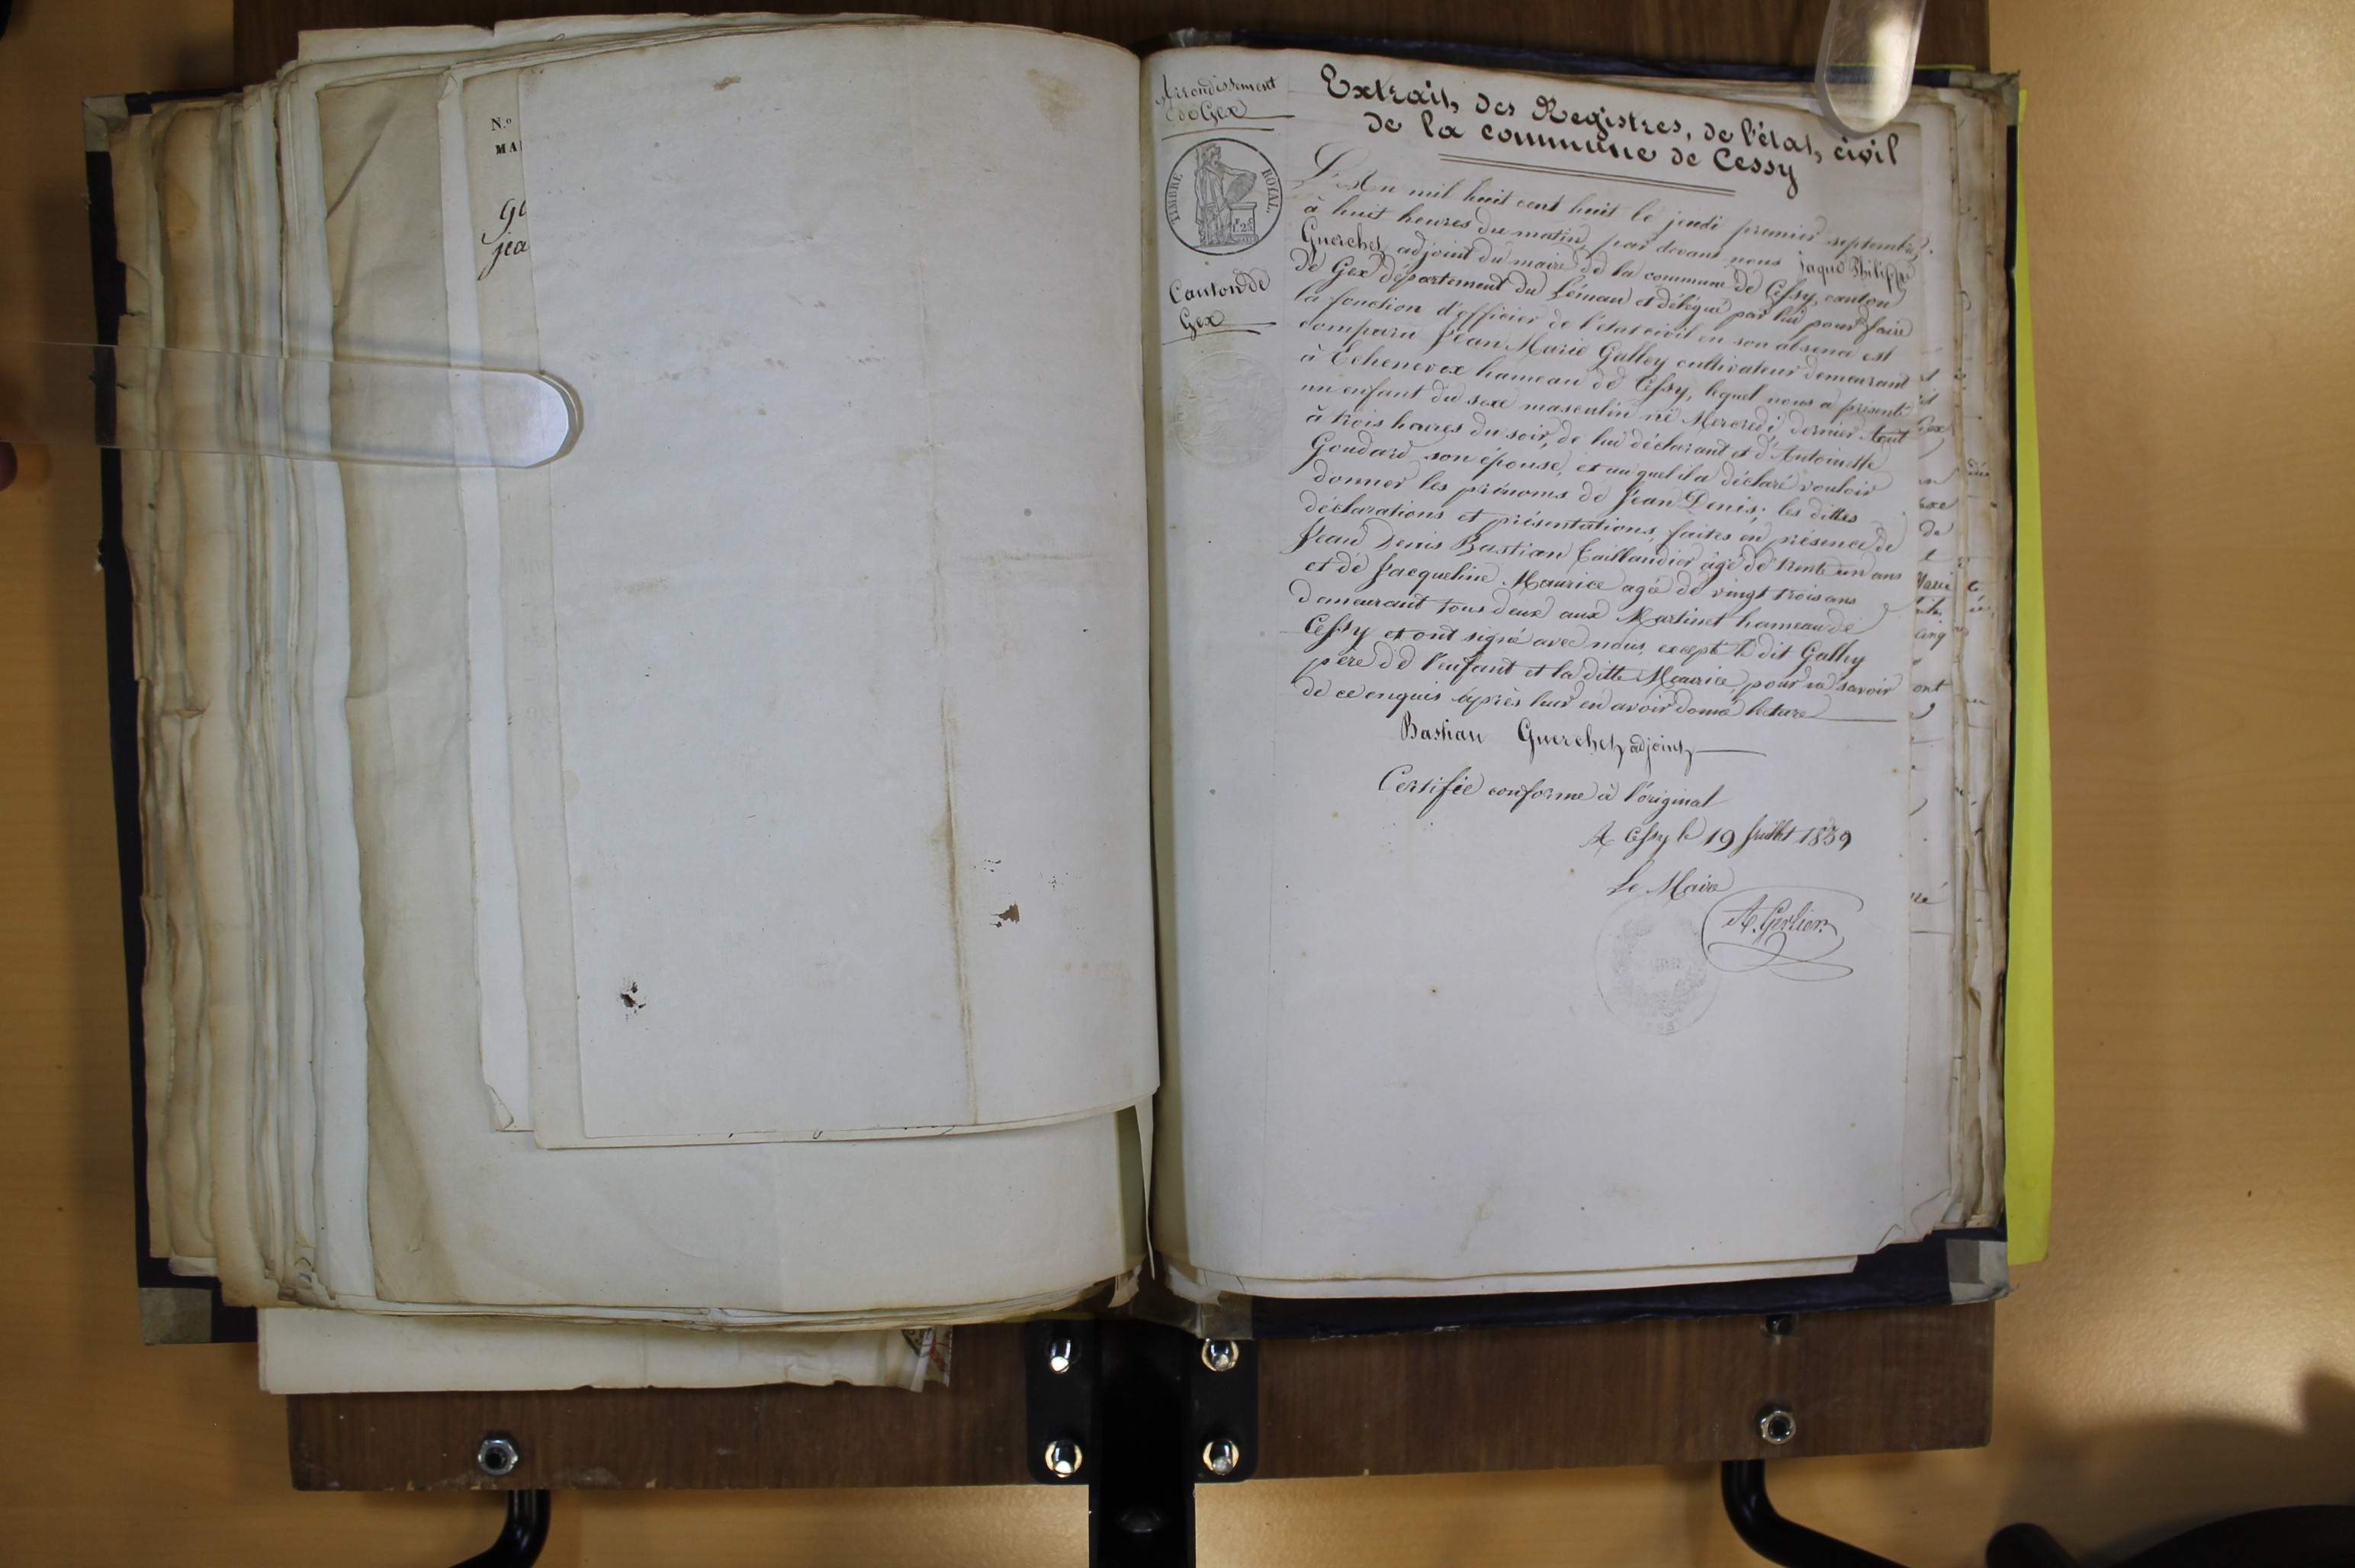 N.º
MA
ge
jea
Arrondissement
de Gex
TIMBRE ROYAL.
Canton de
Gex
Extrait, des Registres, de l'état, civil
de la commune de Cessy
L'An mil huit cent huit le jeudi premier septembre,
à huit heures du matin, par devant nous Jaque Philippe
Guerchet, adjoint du maire de la commune de Cessy, canton
de Gex département du Léman et délégué par lui pour faire
la fonction d'officier de l'état civil en son absence est
comparu Jean Marie Gallay cultivateur demeurant
à Echenevex hameau de Cessy, lequel nous a présenté
un enfant du sexe masculin né Mercredi dernier Aout
à trois heures du soir, de lui déclarant et d'Antoinette
Goudard son épouse, et auquel il a déclaré vouloir
donner les prénoms de Jean Denis; les dittes
déclarations et présentations, faites en présence de
Jean Denis Bastian Taillandier âgé de trente un ans
et de Jacqueline Maurice agée de vingt trois ans
demeurant tous deux aux Martinet hameau de
Cessy et ont signé avec nous, except le dit Gallay
père de l'enfant et la ditte Maurice, pour ne savoir
de ce enquis après leur en avoir donné lecture
Bastian Guerchet, adjoint,
Certifié conforme à l'original
A Cessy le 19 Juillet 1839
Le Maire